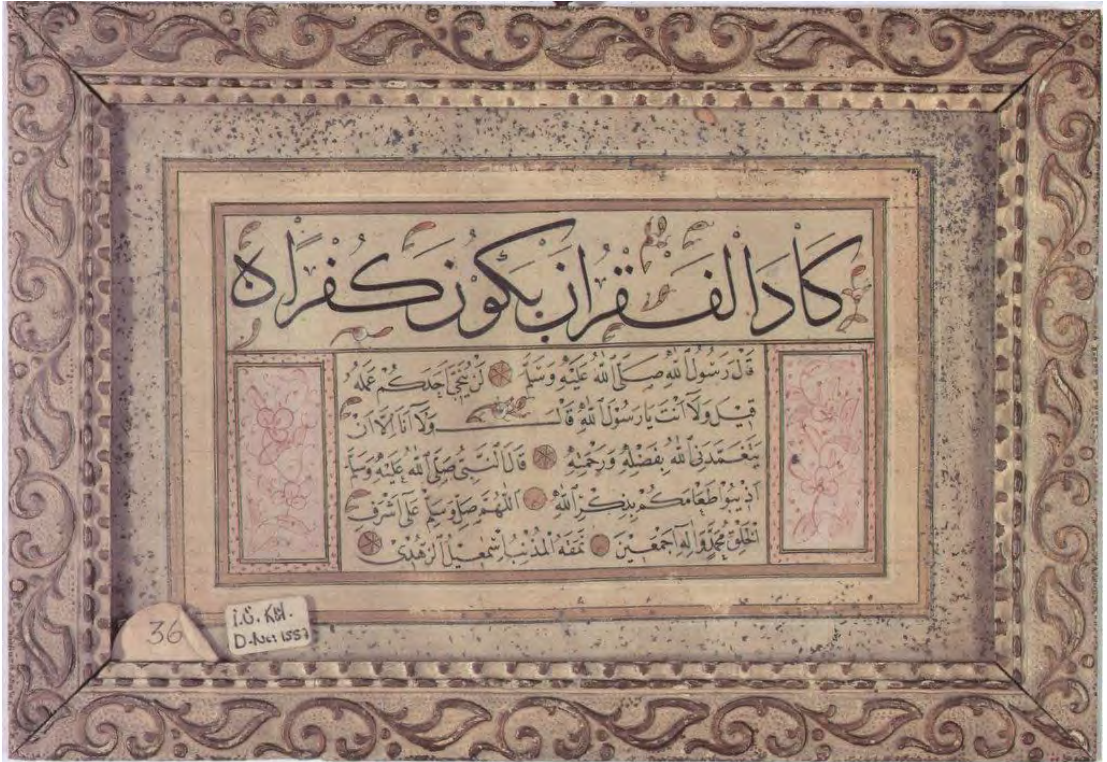 كَادَ الْفَقْرُ اَنْ يَكُونَ كُفْرًا ه
قَالَ رَسُولُ اللهِ صَلَّى اللهُ عَلَيْهِ وَسَلَّمَ لَنْ يُنْجِيَ اَحَدَكُمْ عَمَلُهُ
قِيلَ وَلَا اَنْتَ يَا رَسُولَ اللهِ قَالَ وَلَا اَنَا اِلَّا اَنْ
يَتَغَمَّدَنِيَ اللهُ بِفَضْلِهِ وَرَحْمَتِهِ قَالَ النَّبِيُّ صَلَّى اللهُ عَلَيْهِ وَسَلَّمَ
اَذِيبُوا طَعَامَكُمْ بِذِكْرِ اللهِ اَللّٰهُمَّ صَلِّ وَسَلِّمْ عَلَى اَشْرَفِ
الْخَلْقِ مُحَمَّدٍ وَاٰلِهِ اَجْمَعِينَ نَمَقَهُ الْمُذْنِبُ اِسْمٰعِيلُ الزُّهْدِى
36
İ.Ü. Ktp.
D.No: 1557